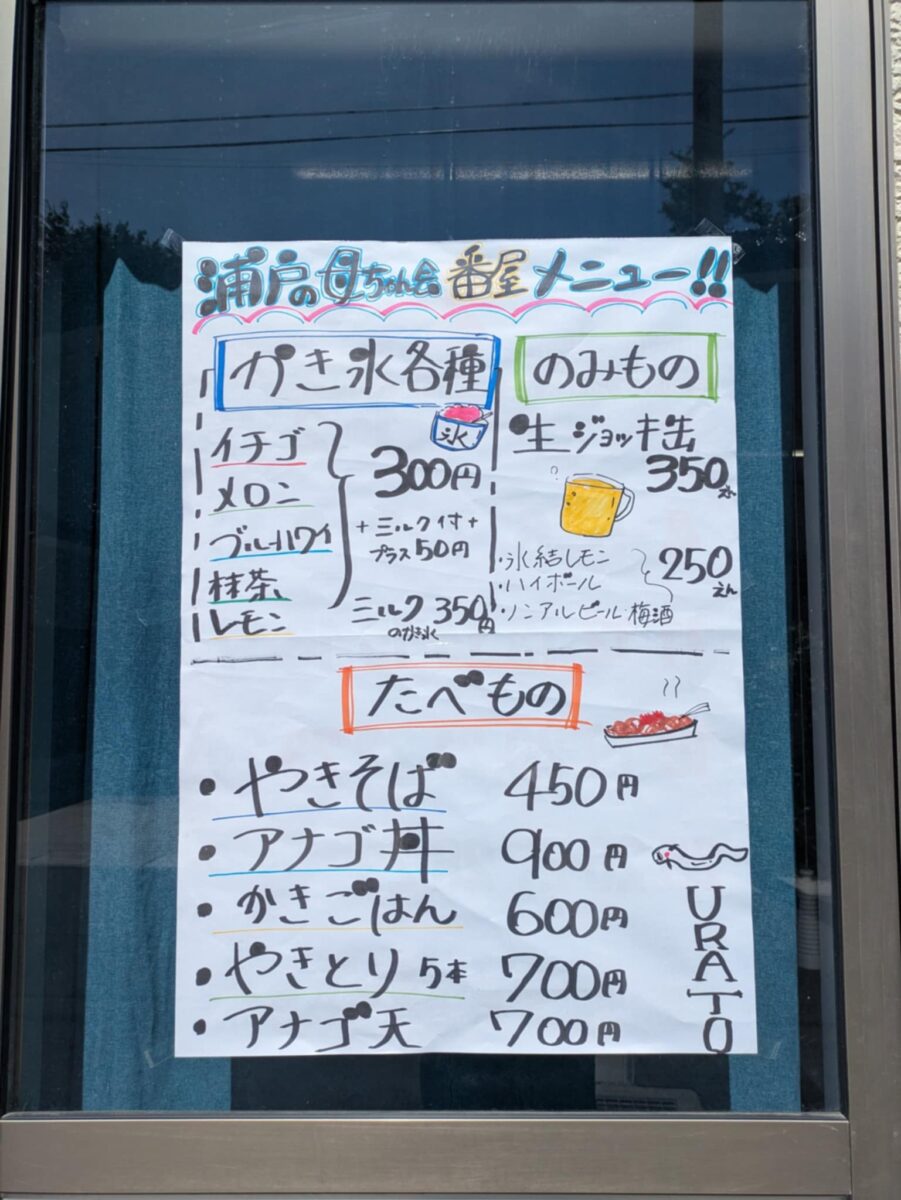 浦戸の母ちゃん会 番屋 メニュー!!
かき氷各種
氷
イチゴ
メロン
ブルーハワイ
抹茶
レモン
300円
+ミルク付+
プラス50円
ミルク 350円
のかき氷
のみもの
生ジョッキ缶
350えん
・氷結レモン
・ハイボール
・ノンアルビール・梅酒
250えん
たべもの
・やきそば 450円
・アナゴ丼 900円
・かきごはん 600円
・やきとり 5本 700円
・アナゴ天 700円
URATO